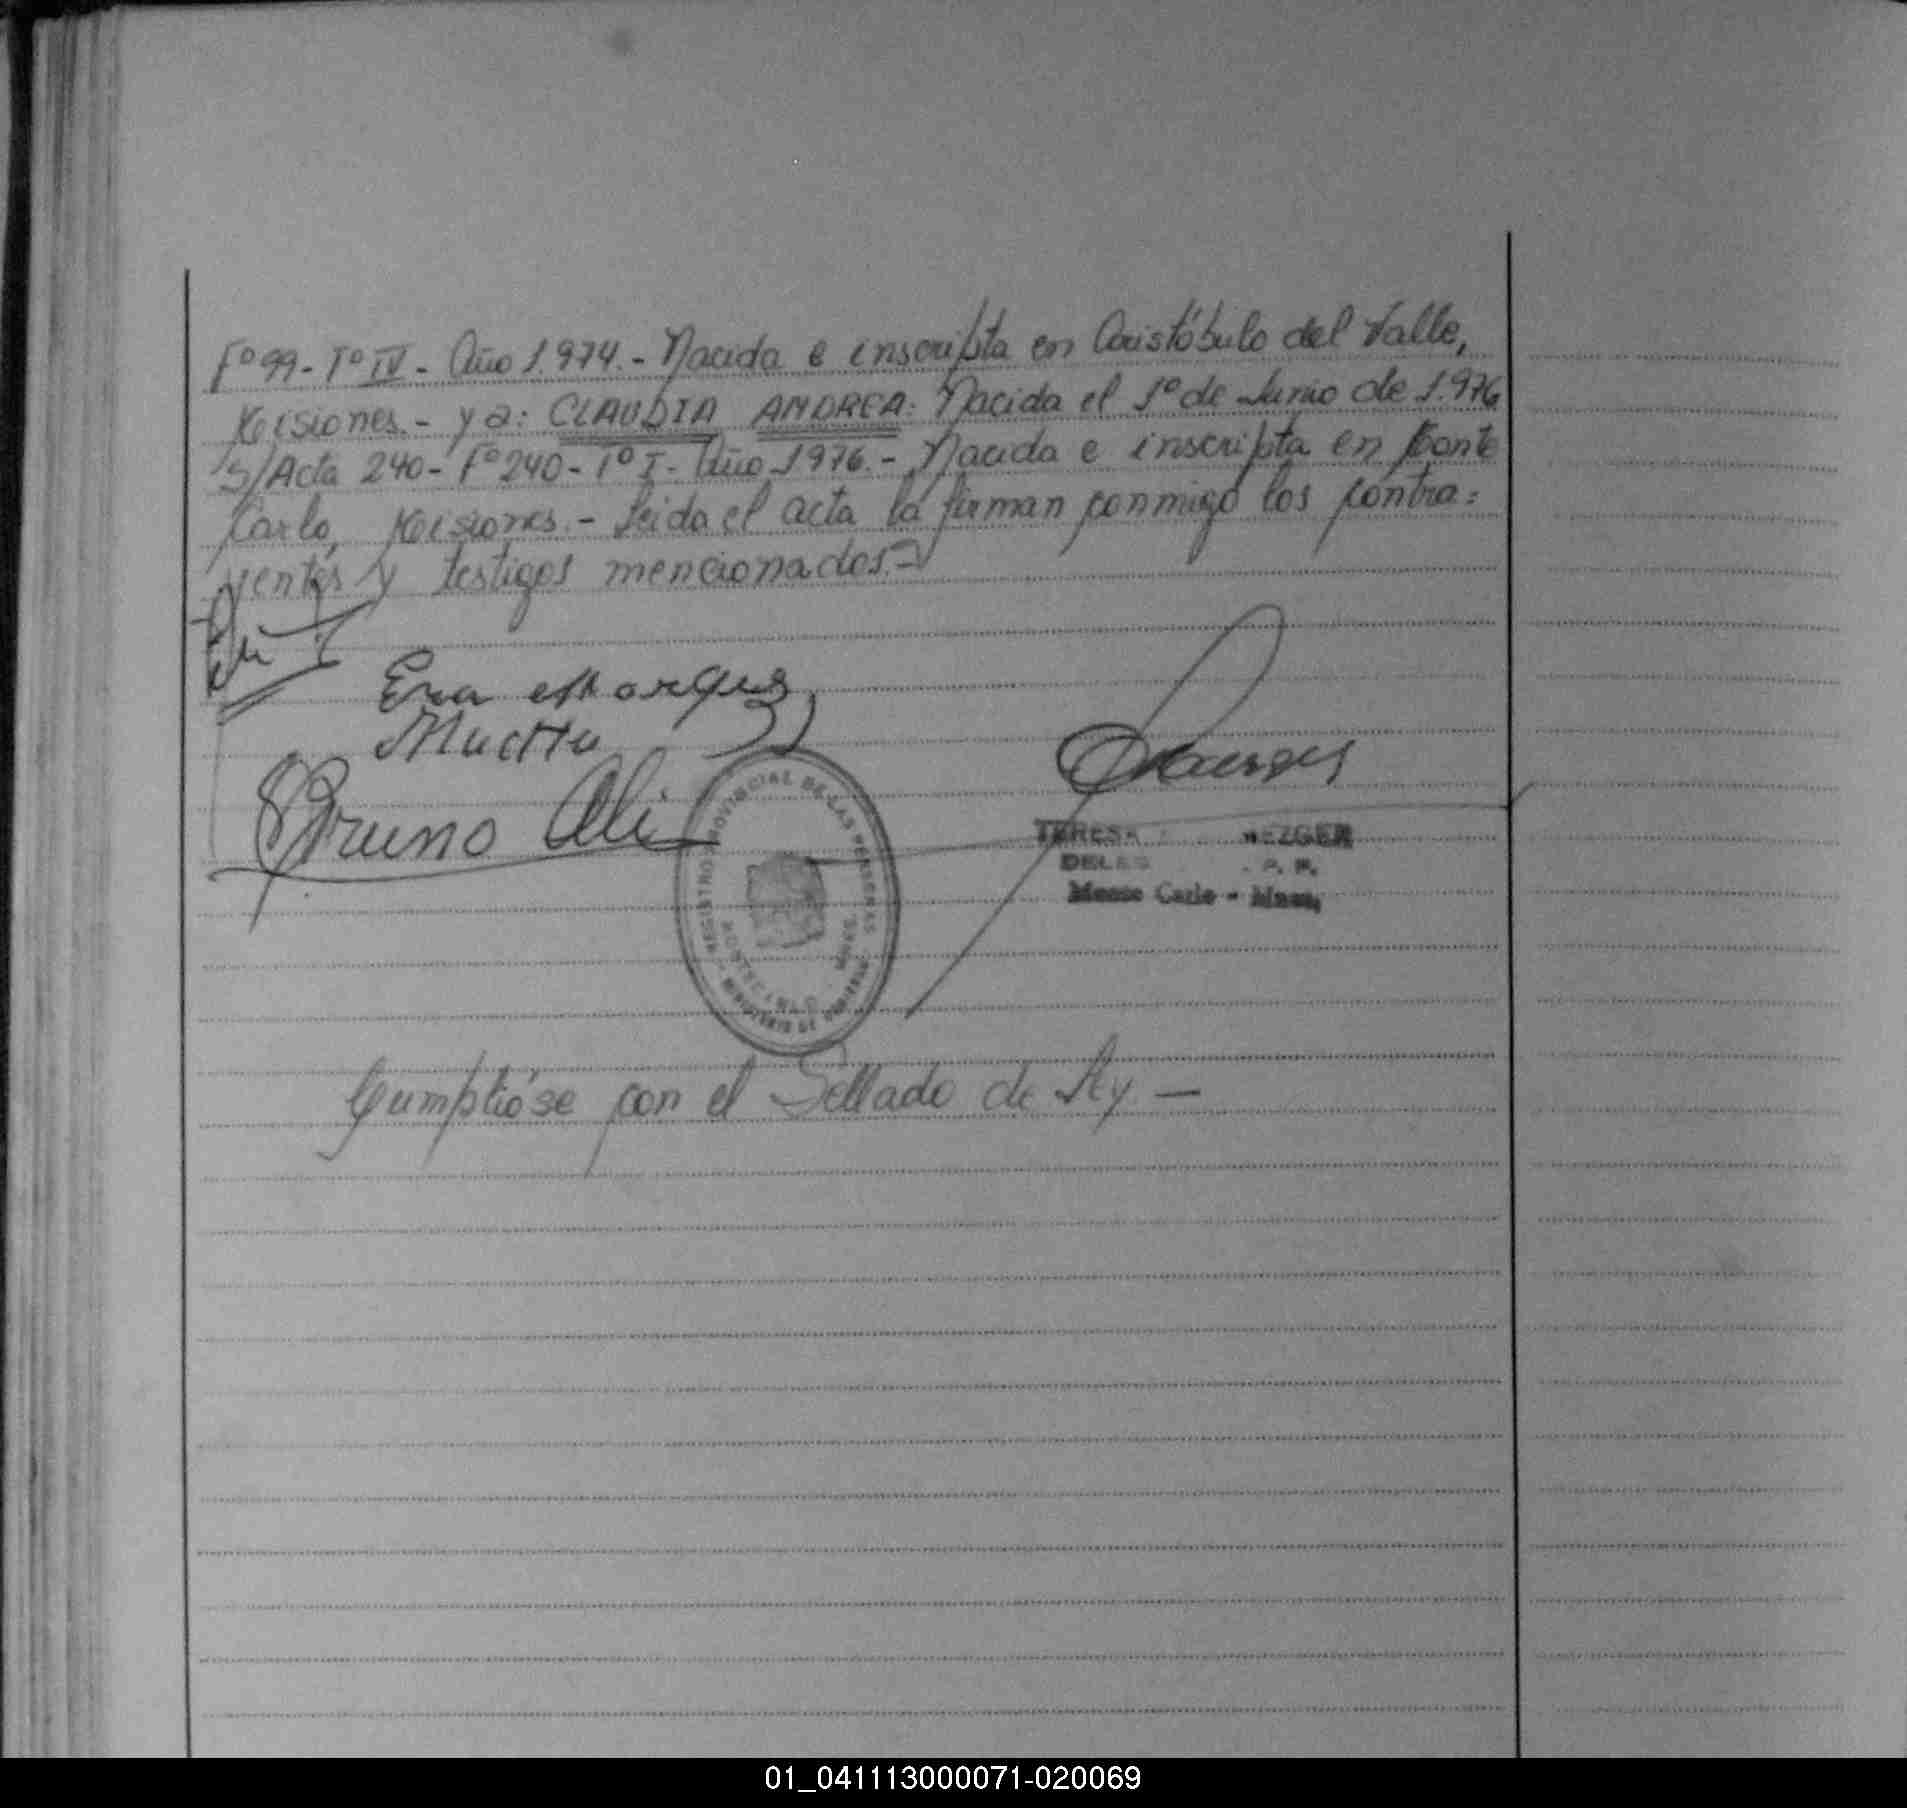 Fº 99 - Tº IV - Año 1.974. - Nacida e inscripta en Aristóbulo del Valle,
Misiones. - y a: CLAUDIA ANDREA: Nacida el 1º de Junio de 1.976
S/Acta 240 - Fº 240 - Tº I - Año 1976. - Nacida e inscripta en Monte
Carlo, Misiones. - Leida el acta la firman conmigo los contra=
yentes y testigos mencionados. -
Eva Marques
Bruno
REGISTRO PROVINCIAL DE LAS PERSONAS
MINISTERIO DE GOBIERNO
MONTECARLO
TERESA MEZGER
Monte Carlo - Mnes.
Cumplióse con el Sellado de Ley. -
01_041113000071-020069